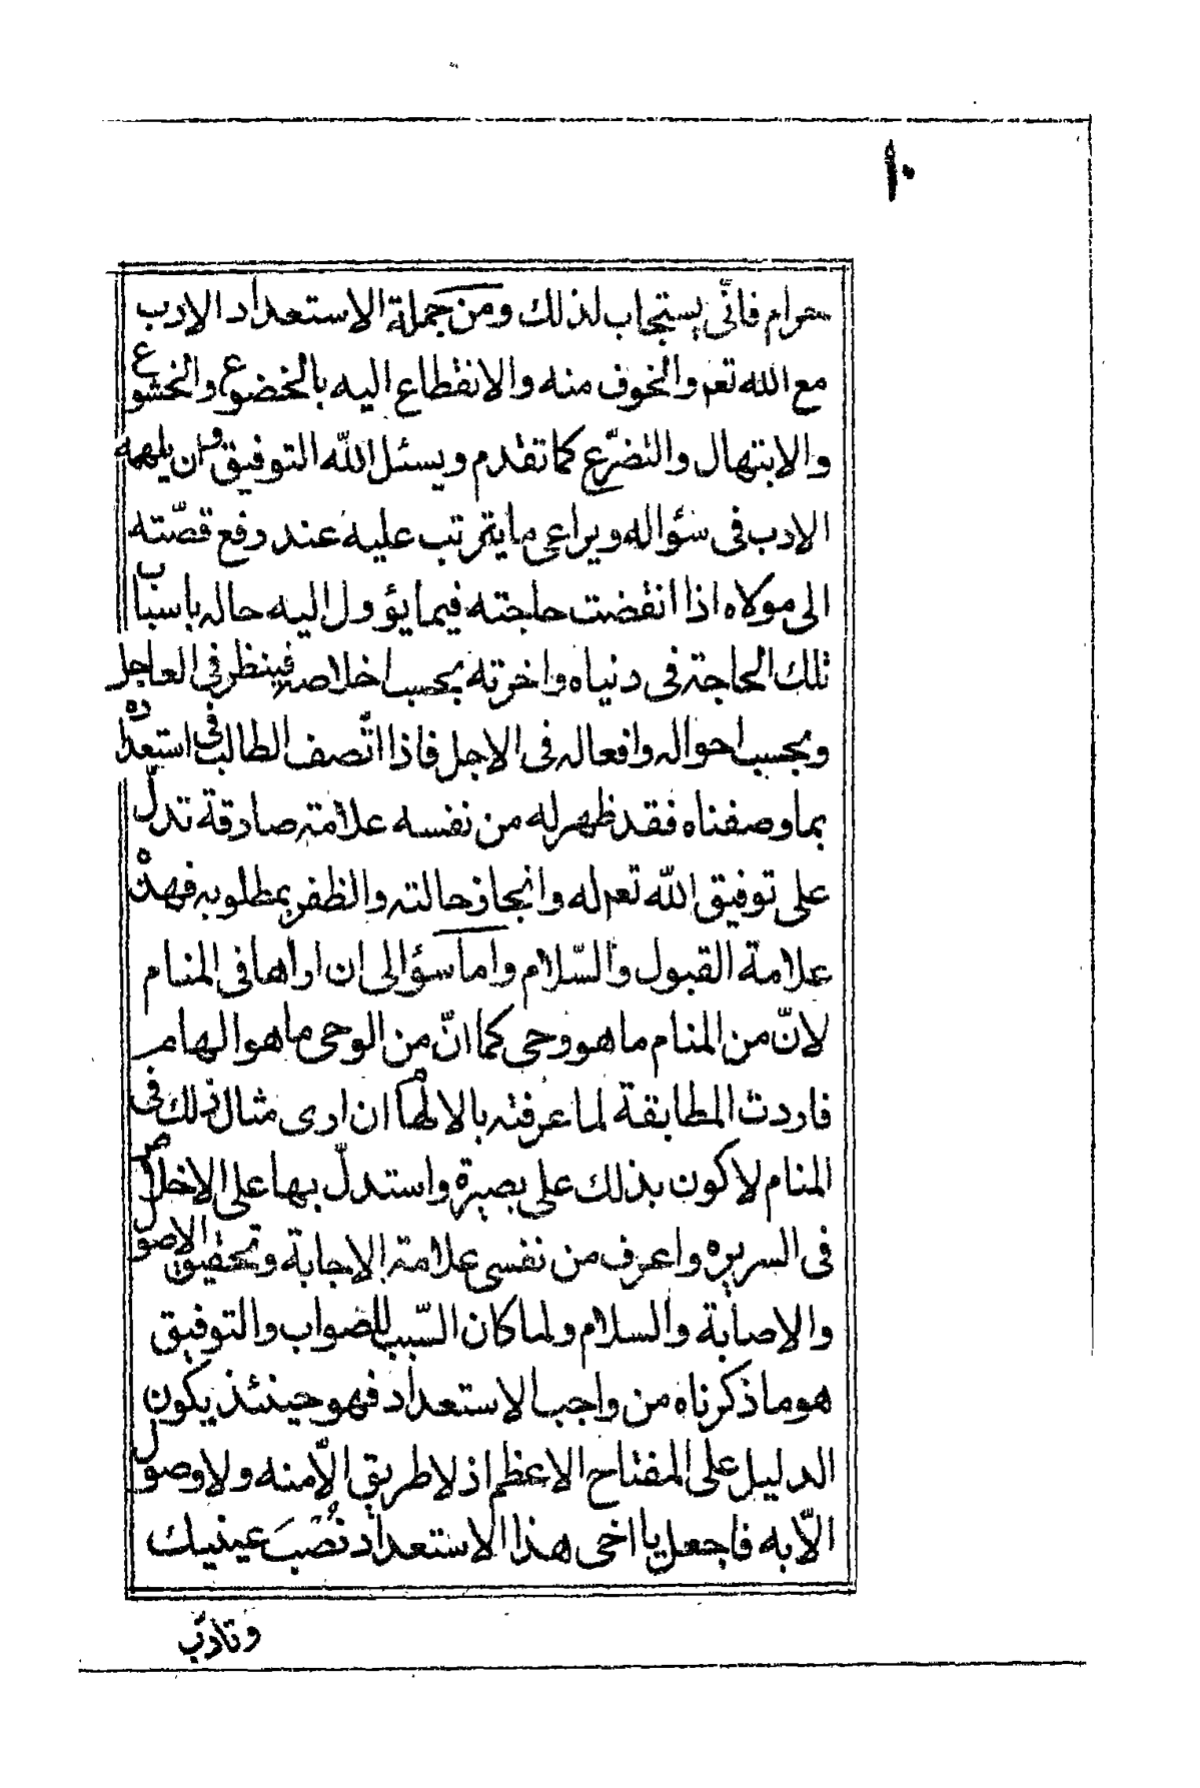 ١٠
حرام فانّى يستجاب لذلك ومن جملة الاستعداد الادب
مع الله تعم والخوف منه والانقطاع اليه بالخضوع والخشوع
والابتهال والتضرّع كما تقدم ويسئل اللّه التوفيق وان يلهمه
الادب فى سؤاله ويراعى ما يترتب عليه عند رفع قصّته
الى مولاه اذا انقضت حاجته فيما يؤول اليه حاله باسباب
تلك الحاجة فى دنياه واخرته بحسب اخلاصه فينظر فى العاجل
وبحسب احواله وافعاله فى الاجل فاذا اتّصف الطالب فى استعداده
بما وصفناه فقد ظهر له من نفسه علامة صادقة تدلّ
على توفيق اللّه تعم له وانجاز حالته والظفر بمطلوبه فهذه
علامة القبول والسّلام واما سؤالى ان اراها فى المنام
لانّ من المنام ما هو وحى كما انّ من الوحى ما هو الهام
فاردت المطابقة لما عرفته بالالهام ان ارى مثال ذلك فى
المنام لاكون بذلك على بصيرة واستدلّ بها على الاخلاص
فى السريره واعرف من نفسى علامة الاجابة وتحقيق الاصول
والاصابة والسلام ولما كان السّبب للصواب والتوفيق
هو ما ذكرناه من واجب الاستعداد فهو حينئذ يكون
الدليل على المفتاح الاعظم اذ لا طريق الّا منه ولا وصول
الّا به فاجعل يا اخى هذا الاستعداد نُصْبَ عينيك
وتادّب